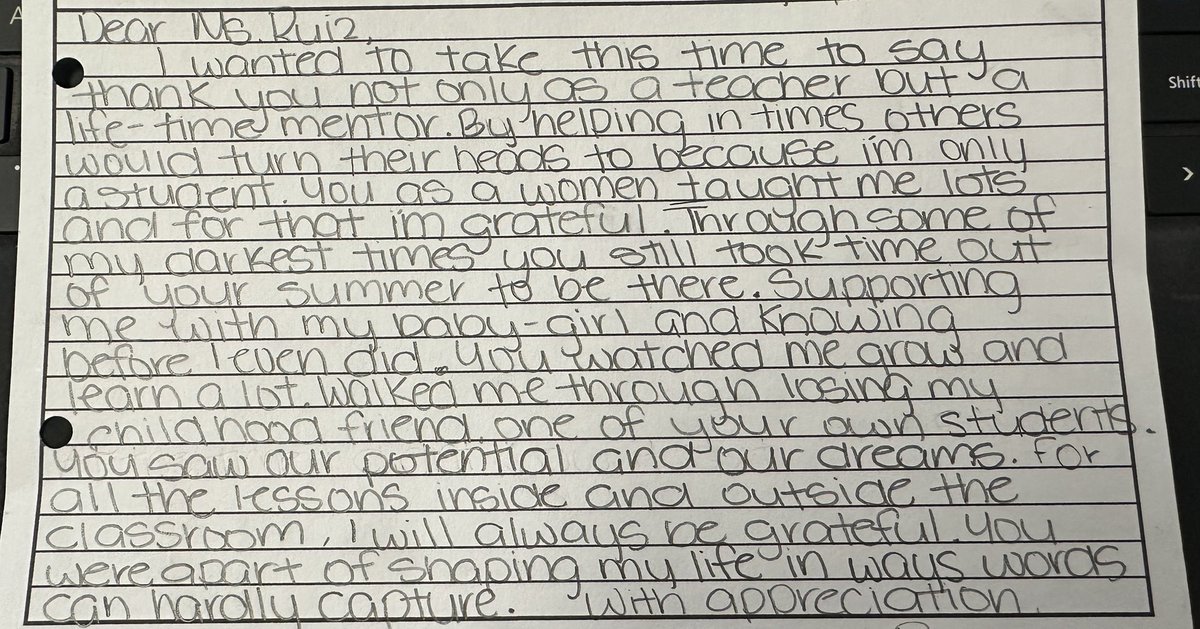 Dear Ms. Ruiz,
I wanted to take this time to say
thank you not only as a teacher but a
life-time mentor. By helping in times others
would turn their heads to because im only
a student. You as a women taught me lots
and for that im grateful. Through some of
my darkest times you still took time out
of your summer to be there. Supporting
me with my baby-girl and knowing
before I even did. You watched me grow and
learn a lot. Walked me through losing my
childhood friend, one of your own students.
You saw our potential and our dreams. For
all the lessons inside and outside the
classroom, I will always be grateful. You
were apart of shaping my life in ways words
can hardly capture. With appreciation,
Shift